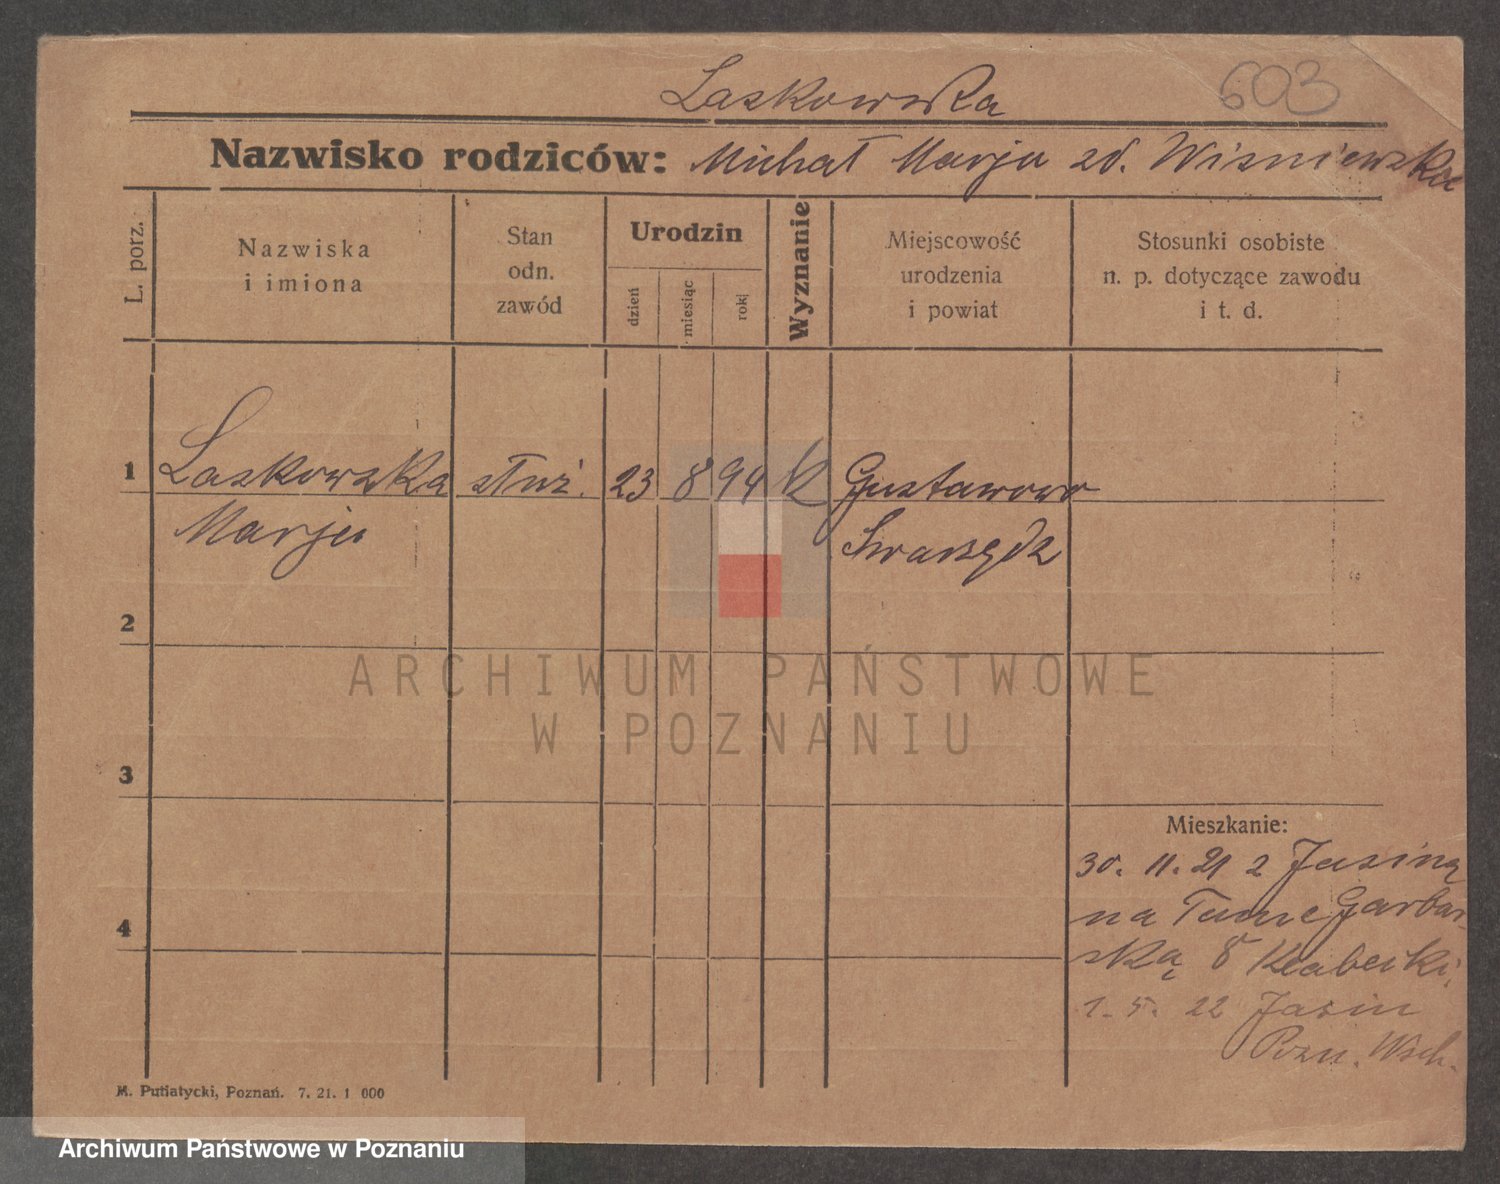 Laskowska
603
Nazwisko rodziców: Michał Marja zd. Wiśniewska
L. porz.
Nazwiska
i imiona
Stan
odn.
zawód
Urodzin
dzień
miesiąc
rok
Wyznanie
Miejscowość
urodzenia
i powiat
Stosunki osobiste
n. p. dotyczące zawodu
i t. d.
1 Laskowska służ. 23 8 94 k Gustawowo
Marja Swarzędz
2
3
4
ARCHIWUM PAŃSTWOWE
W POZNANIU
Mieszkanie:
30. 11. 21 z Jasina
na Garbar-
ską 8
1. 5. 22 Jasin
Pozn. Wsch.
M. Putiatycki, Poznań. 7. 21. 1 000
Archiwum Państwowe w Poznaniu